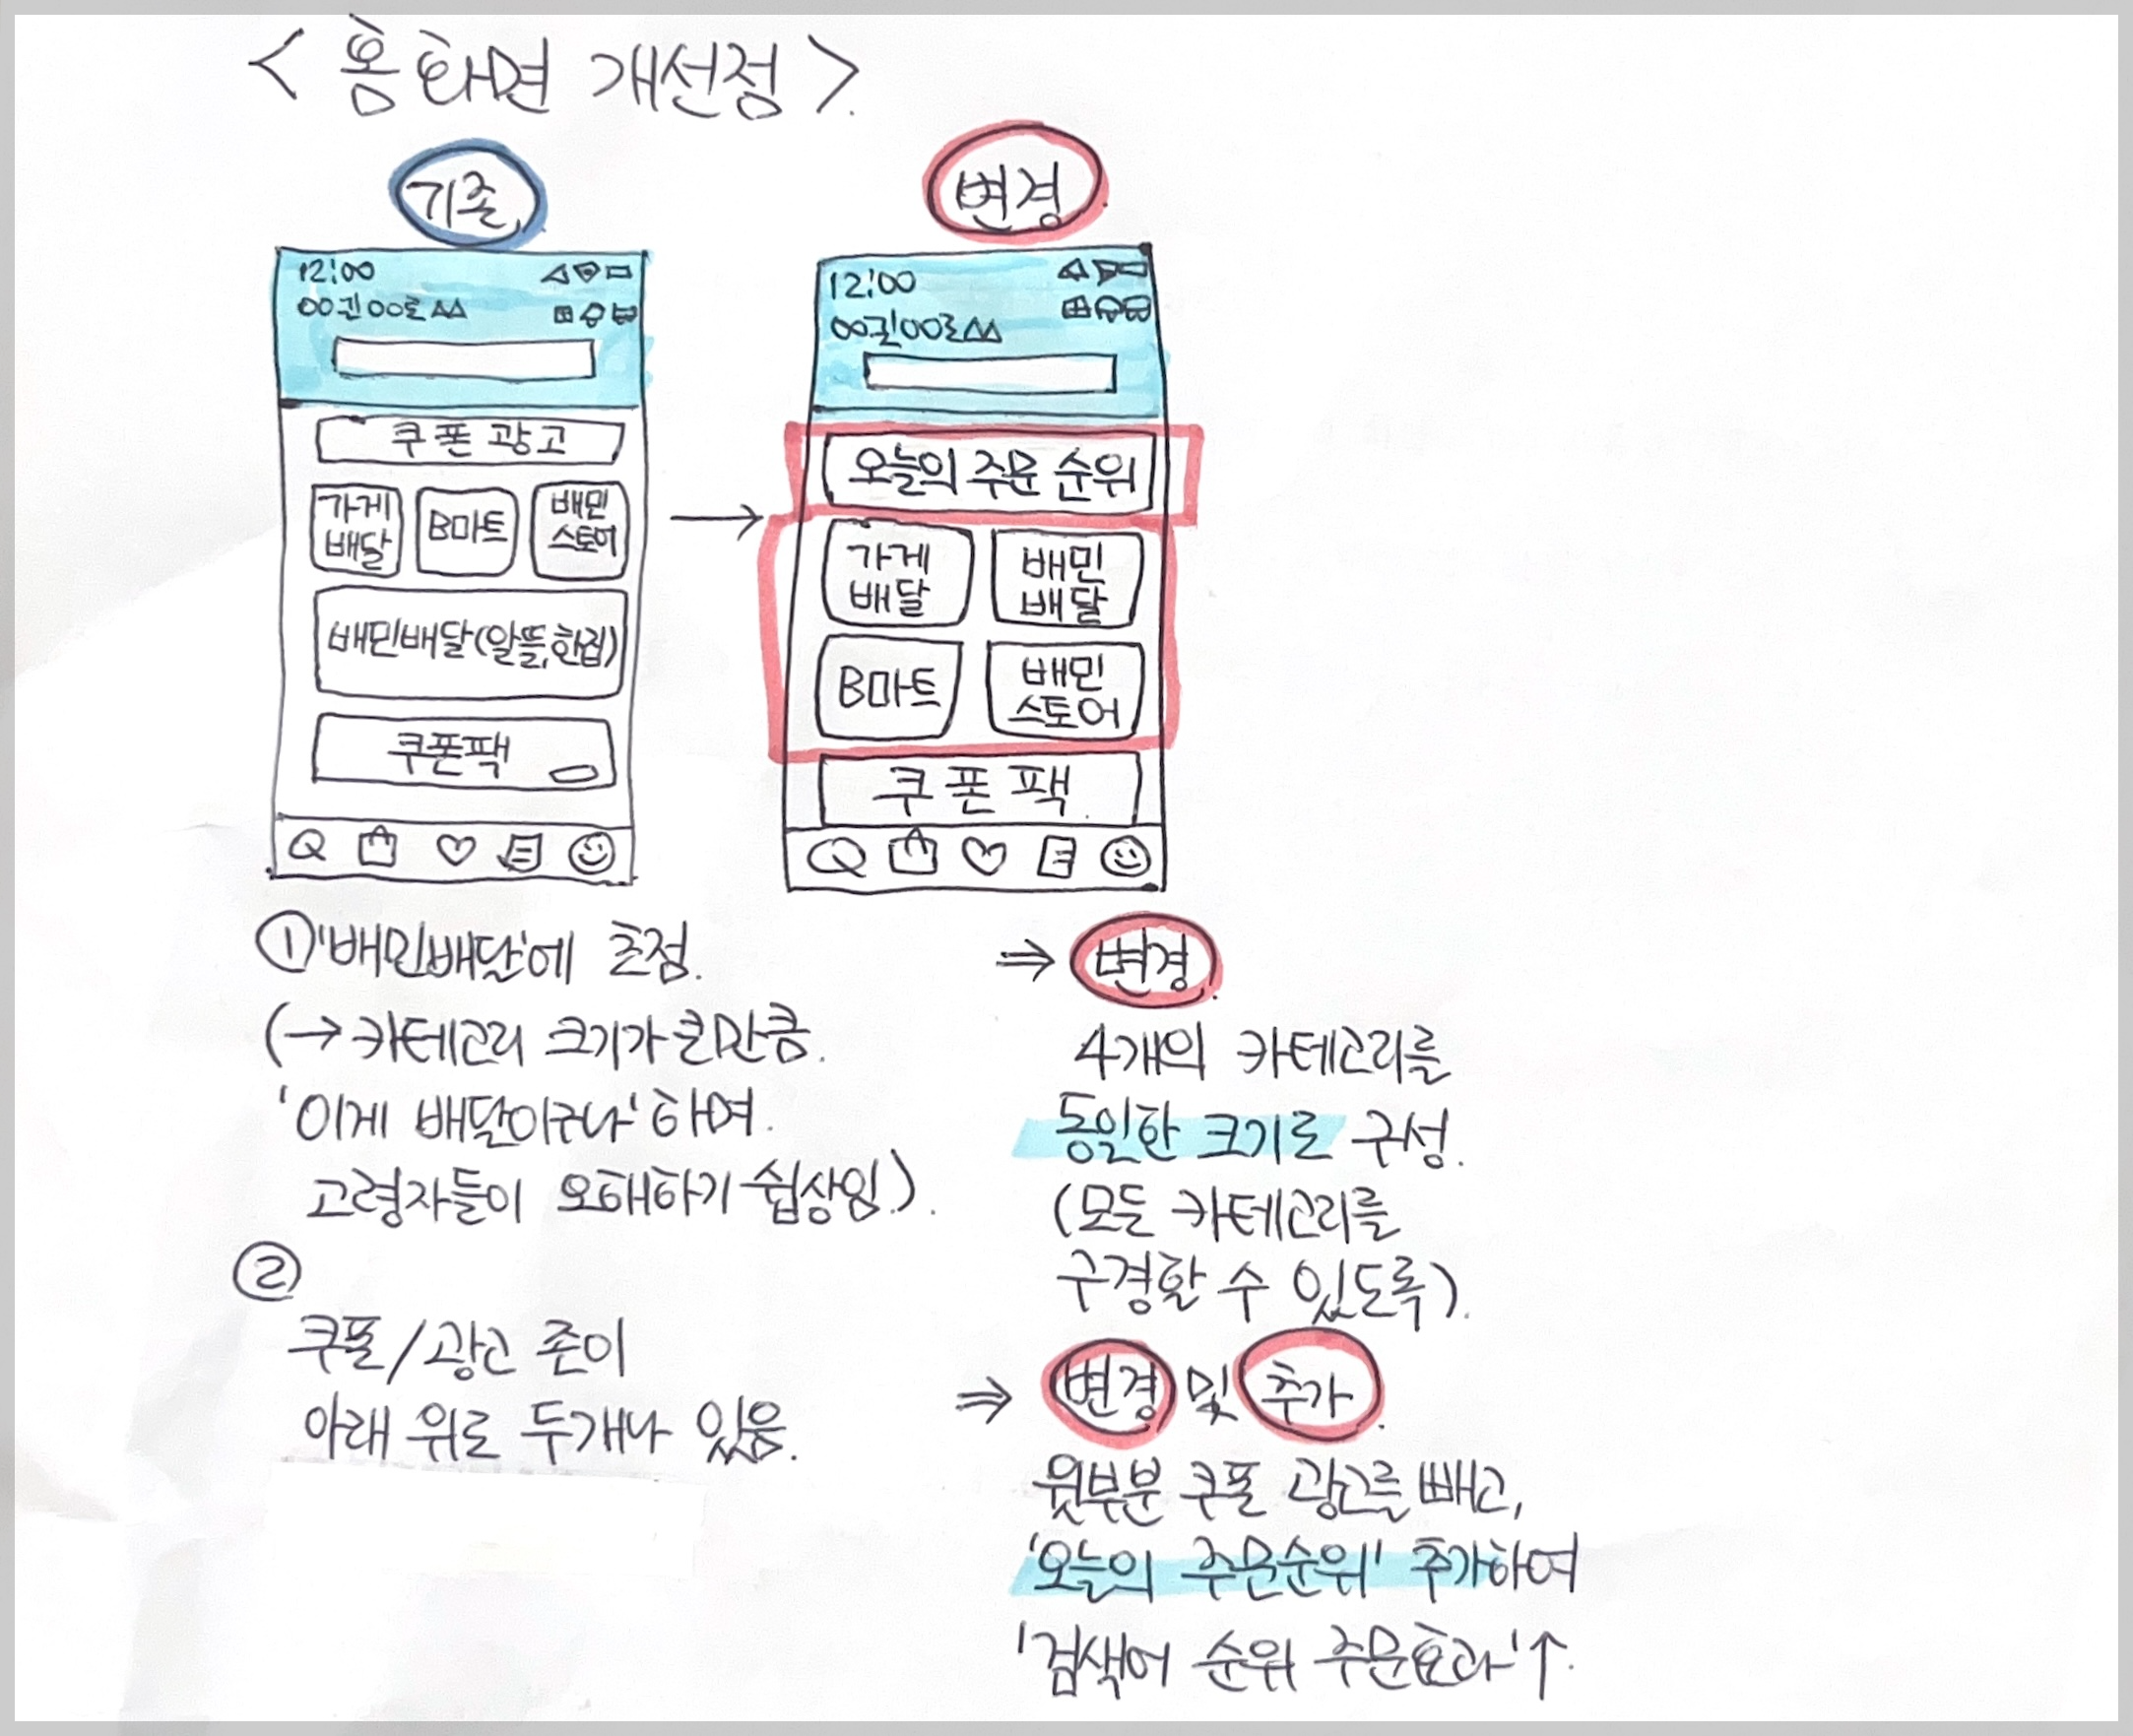 < 홈화면 개선점 >.
기존
12:00
00길00로△△
쿠폰 광고
가게
배달
B마트
배민
스토어
배민배달(알뜰,한집)
쿠폰팩
변경
12:00
00길00로△△
오늘의 주문 순위
가게
배달
배민
배달
B마트
배민
스토어
쿠폰팩
① '배민배달'에 초점.
(→ 카테고리 크기가 큰만큼.
'이게 배달이구나' 하여.
고령자들이 오해하기 쉽상임).
⇒ 변경
4개의 카테고리를
동일한 크기로 구성.
(모든 카테고리를
구경할 수 있도록).
②
쿠폰/광고 존이
아래 위로 두개나 있음.
⇒ 변경 및 추가.
윗부분 쿠폰 광고를 빼고,
'오늘의 주문순위' 추가하여
'검색어 순위 주문효과'↑.